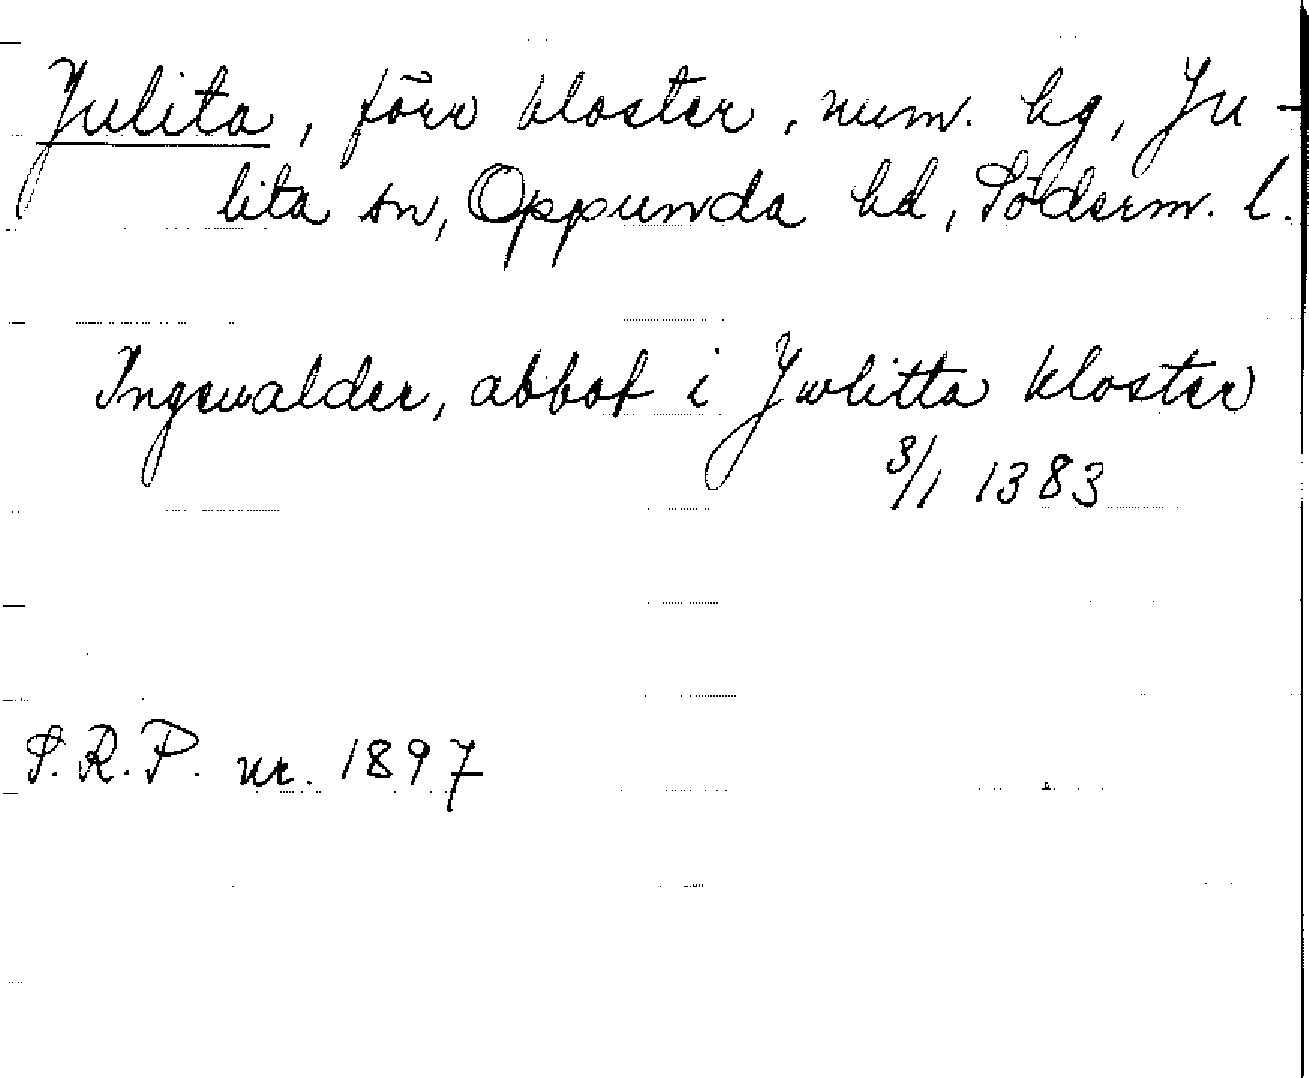 Julita, förr kloster, num. hg, Ju-
lita sn, Oppunda hd, Söderm. l.
Ingewalder, abbot i Jwlitta kloster
3/1 1383
S.R.P. nr. 1897